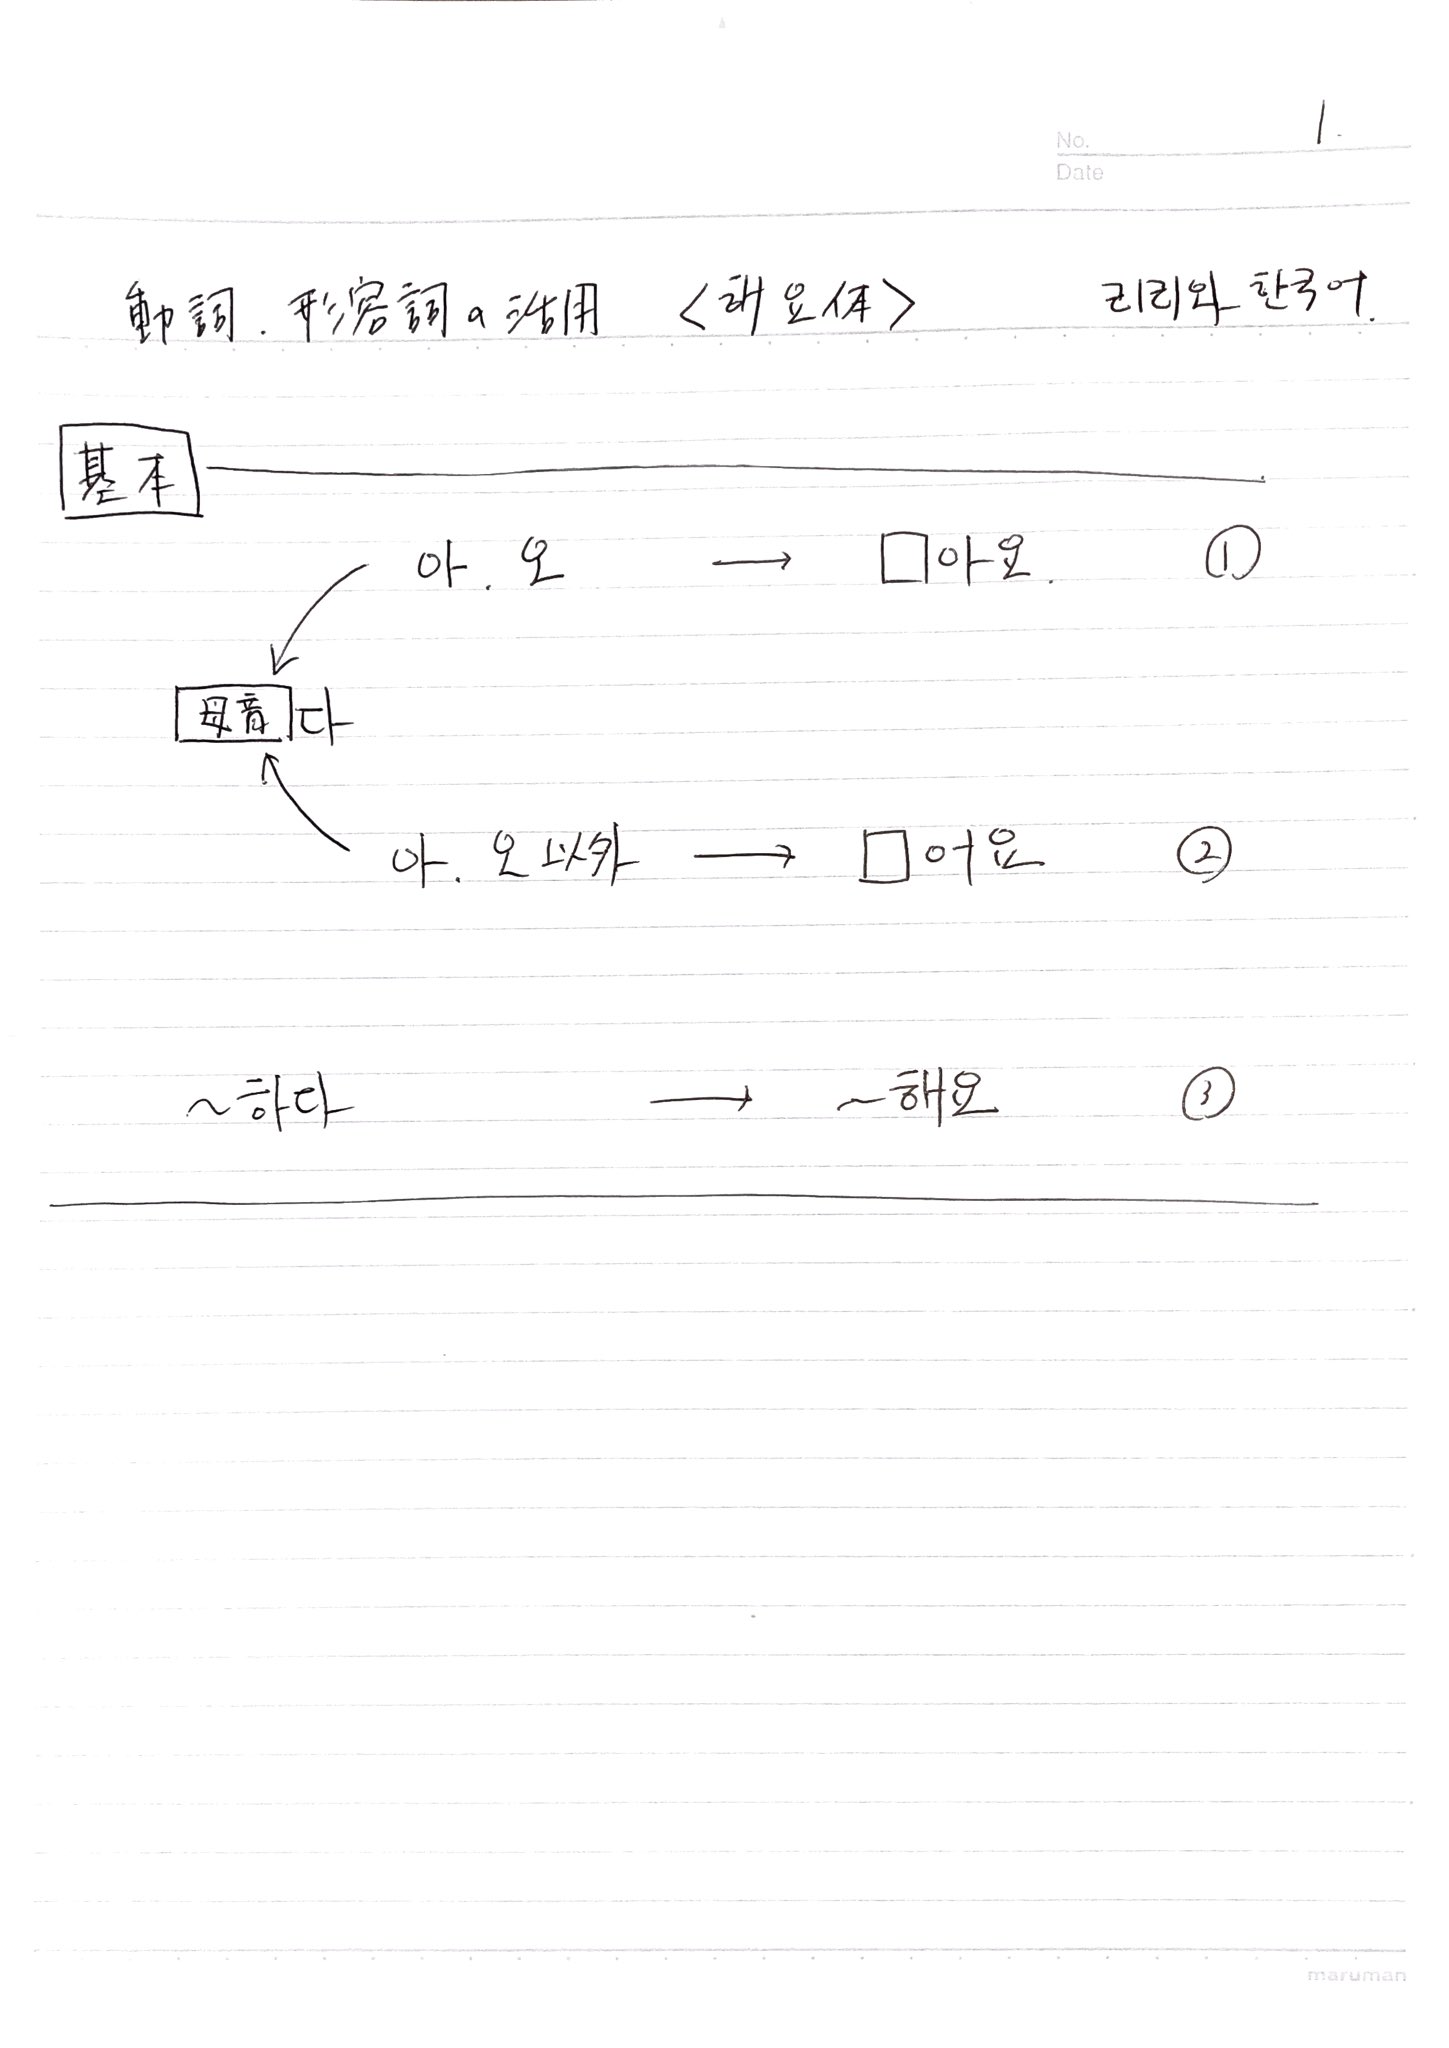 1.
No.
Date
動詞.形容詞の活用 〈해요体〉 리리와 한국어.
基本
아.오 → □아요. ①
母音다
아.오以外 → □어요 ②
~하다 → ~해요 ③
maruman